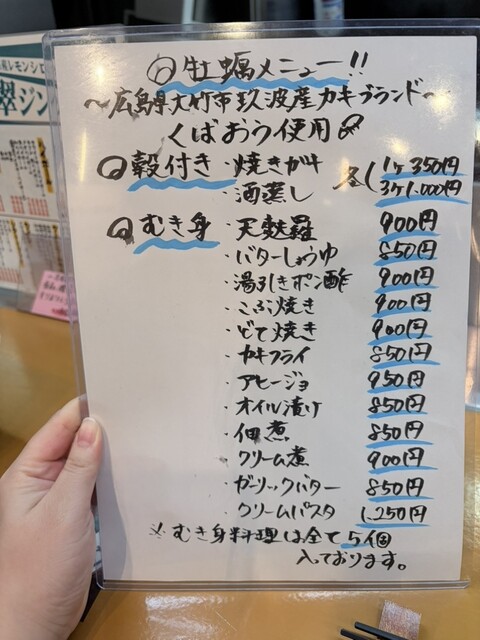 牡蠣メニュー!!
～広島県大竹市玖波産カキブランド～
くばおう使用
殻付き ・焼きがキ 各 1ヶ 350円
・酒蒸し 3ヶ1.000円
むき身 ・天麩羅 900円
・バターしょうゆ 850円
・湯引きポン酢 900円
・こぶ焼き 900円
・どて焼き 900円
・カキフライ 850円
・アヒージョ 950円
・オイル漬け 850円
・佃煮 850円
・クリーム煮 900円
・ガーリックバター 850円
・クリームパスタ 1.250円
※むき身料理は全て5個
入っております。
レモンシ
翠ジン